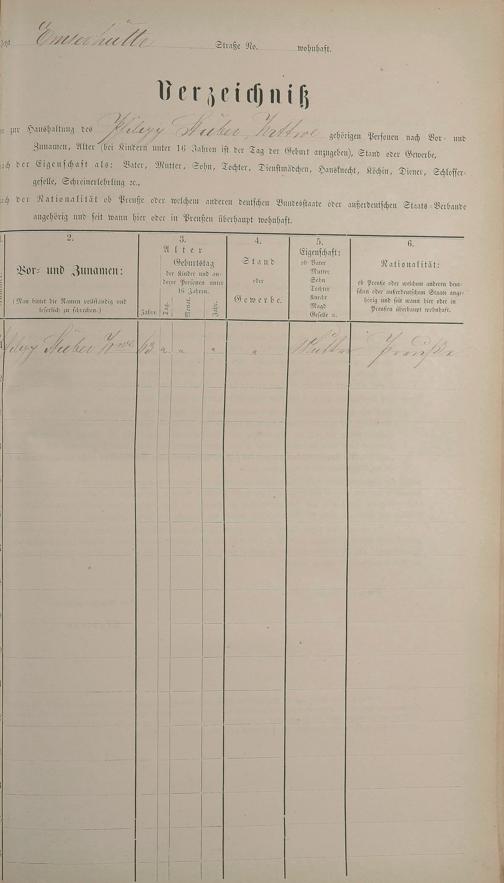 Emserhütte Straße No. wohnhaft.
Verzeichniß
zur Haushaltung des Philipp Stüber, Wittwe gehörigen Personen nach Vor- und
Zunamen, Alter (bei Kindern unter 16 Jahren ist der Tag der Geburt anzugeben), Stand oder Gewerbe,
der Eigenschaft als: Vater, Mutter, Sohn, Tochter, Dienstmädchen, Hausknecht, Köchin, Diener, Schlosser-
geselle, Schreinerlehrling ꝛc.,
der Nationalität ob Preuße oder welchem anderen deutschen Bundesstaate oder außerdeutschen Staats-Verbande
angehörig und seit wann hier oder in Preußen überhaupt wohnhaft.
2.
Vor- und Zunamen:
(Man bittet die Namen vollständig und
leserlich zu schreiben.)
3.
Alter
Geburtstag
der Kinder und an-
derer Personen unter
16 Jahren.
Jahre
Tag.
Monat.
Jahr.
4.
Stand
oder
Gewerbe.
5.
Eigenschaft:
ob Vater
Mutter
Sohn
Tochter
Knecht
Magd
Geselle ꝛc.
6.
Nationalität:
ob Preuße oder welchem anderen deut-
schen oder außerdeutschen Staat ange-
hörig und seit wann hier oder in
Preußen überhaupt wohnhaft.
Stüber Wwe 63 " " " " Mutter Preußin